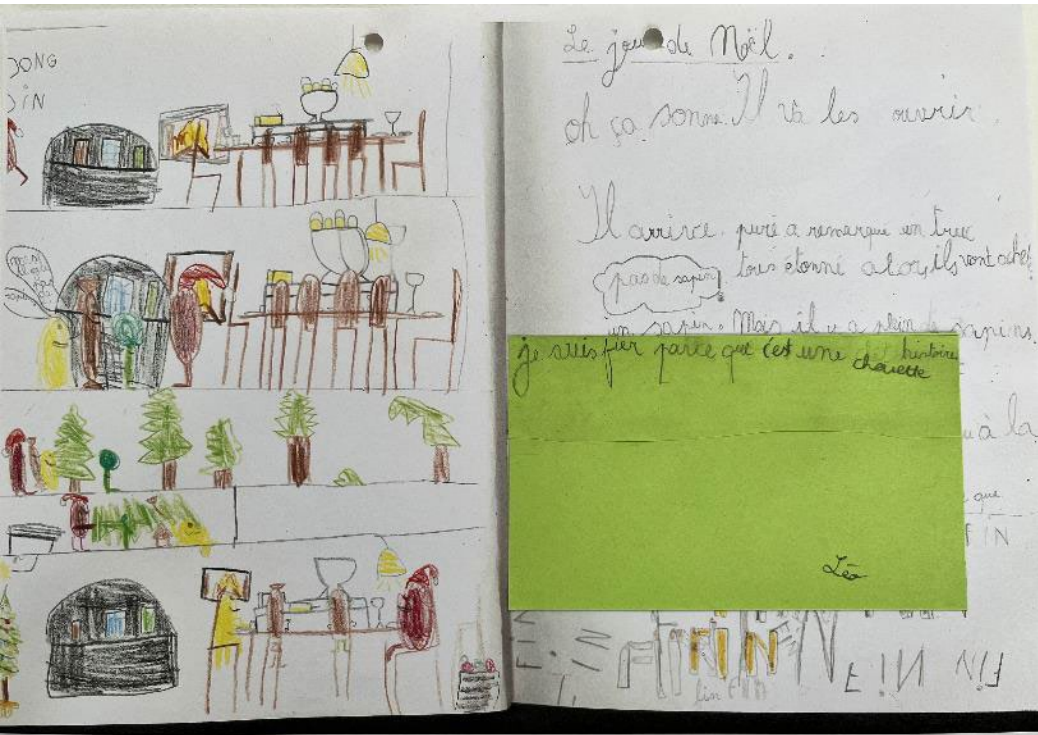 DONG
DIN
Le jour de Noël.
oh ça sonne. Il và les ouvrir.
Il arrive. puré a remarqué un truc
pas de sapin
tous étonné alors ils vont achet
un sapin. Mais il y a plein de sapins.
je suis fier parce que c'est une histoire
chouette
à la
que
FIN
Léo
FIN
FIN
FIN
FIN
fin
FIN
FIN